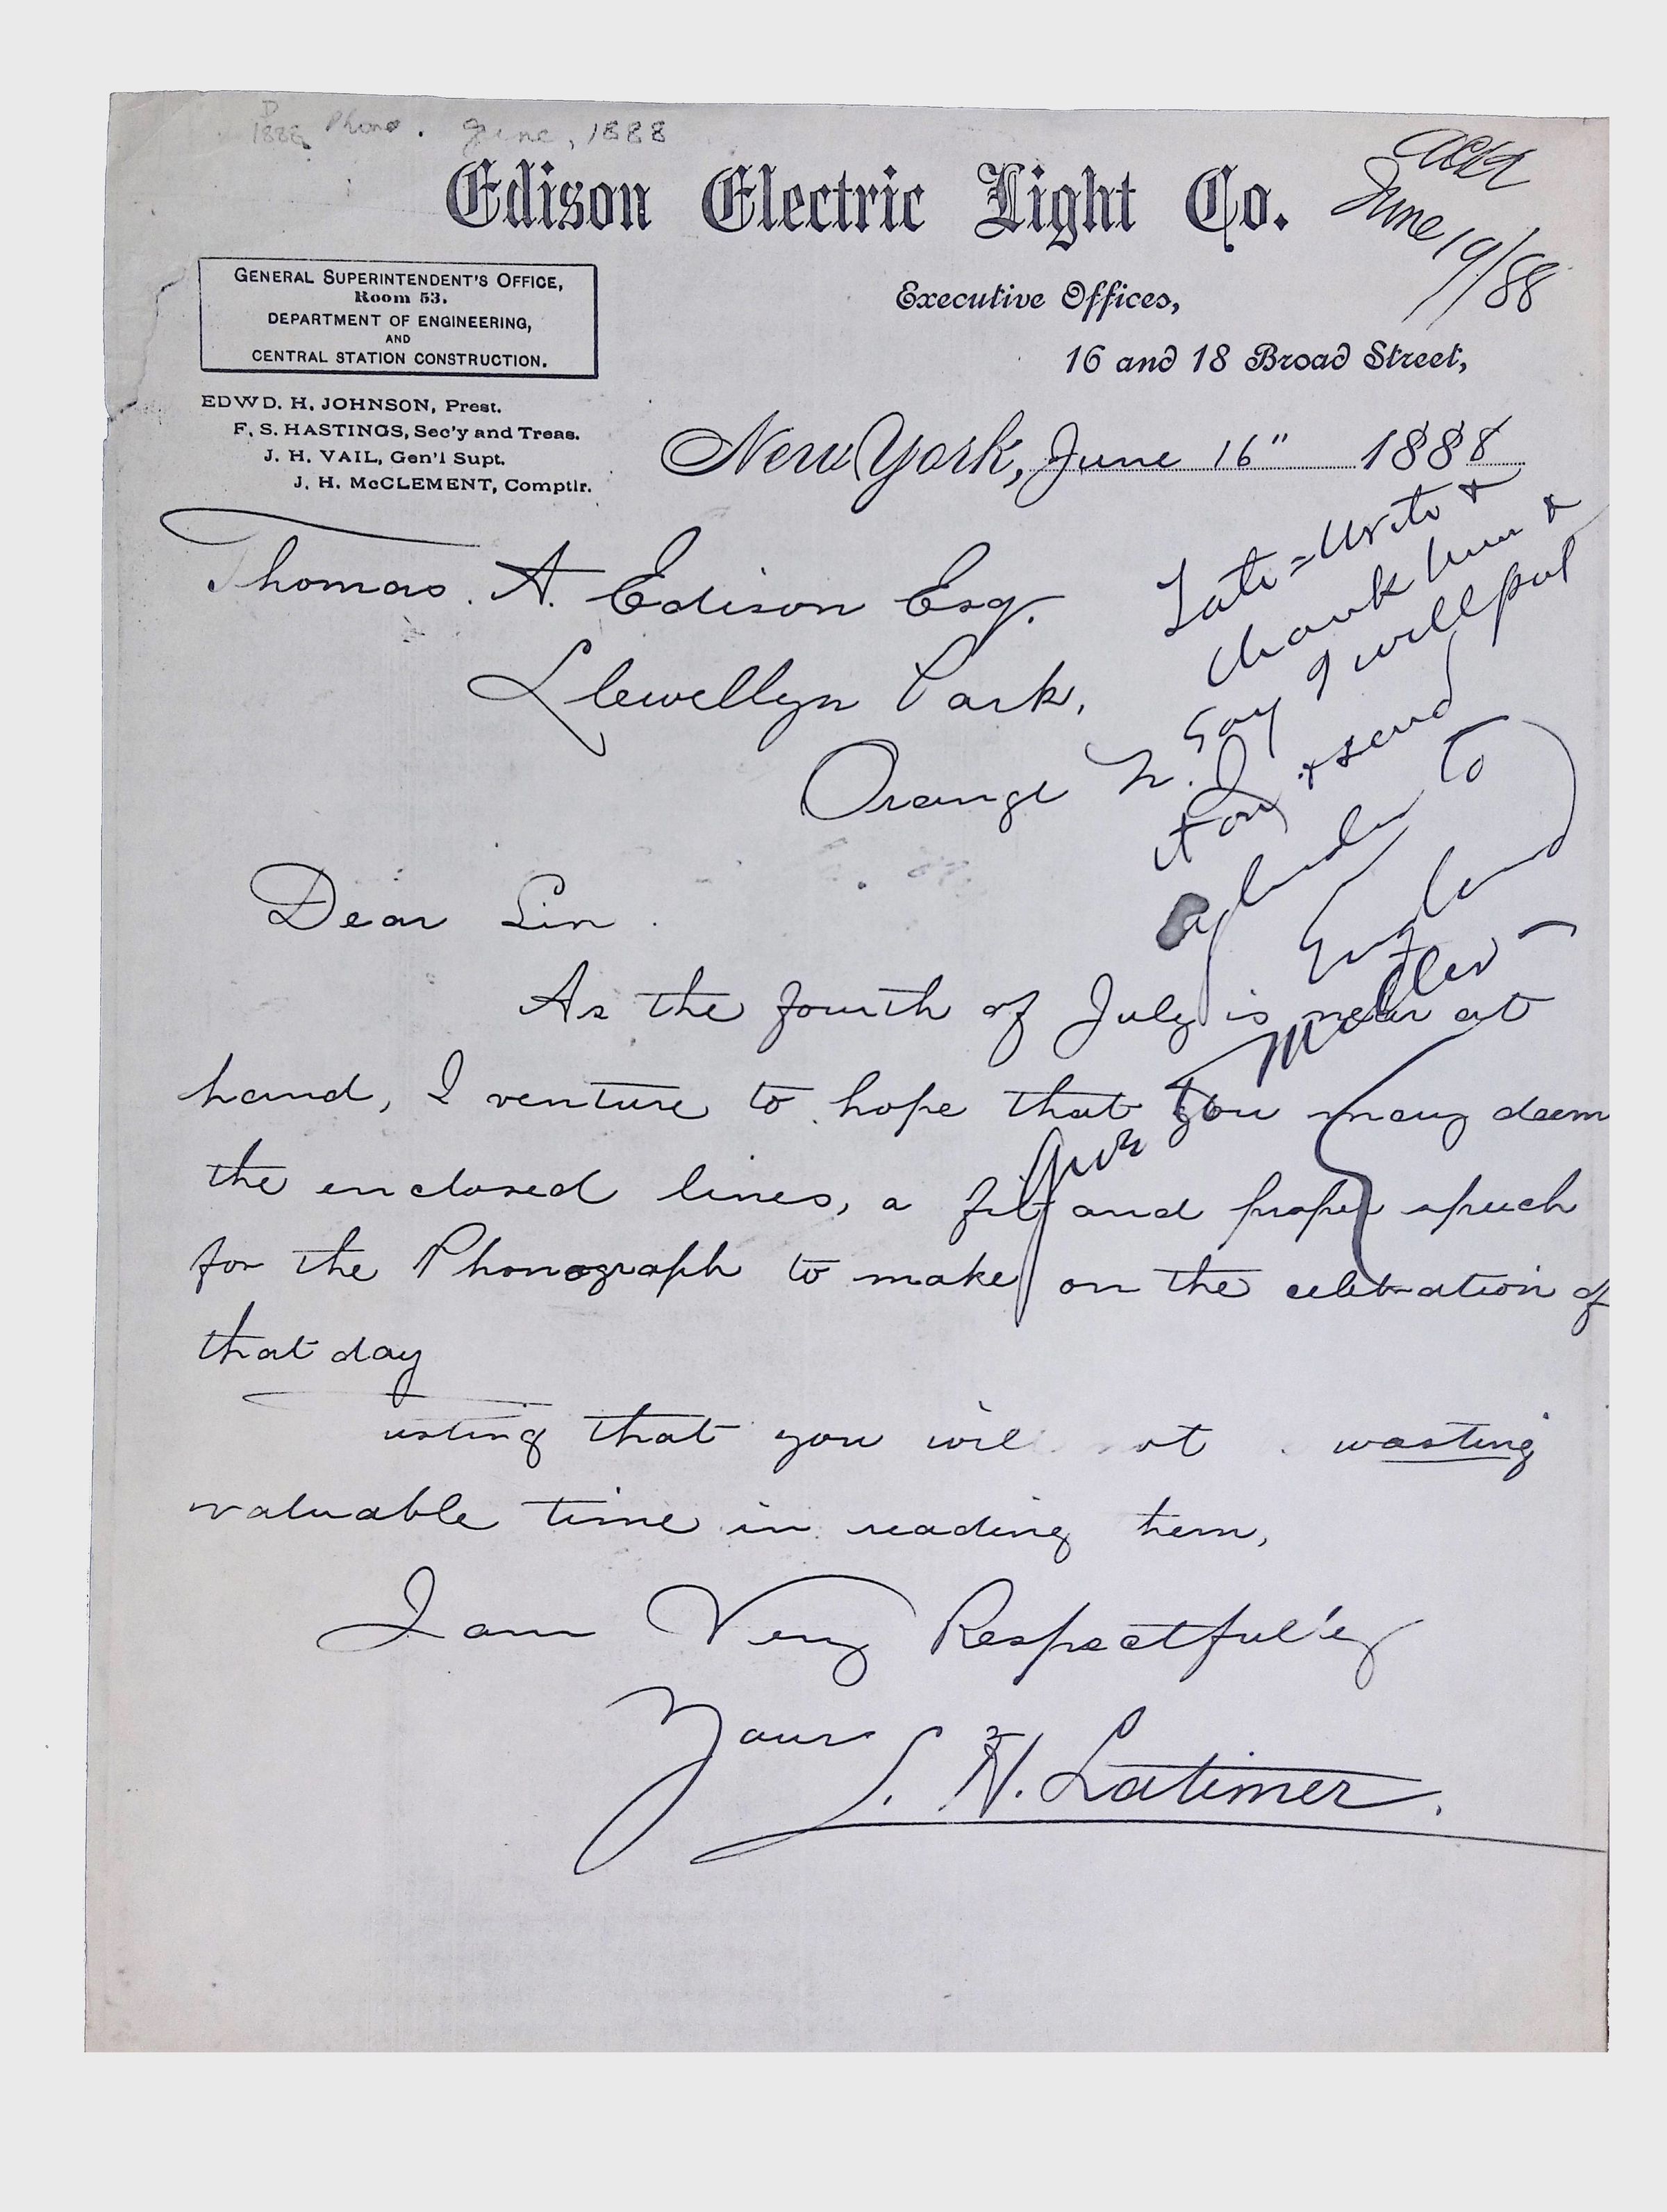 1888 Phono. June, 1888
Edison Electric Light Co.
June 19/88
GENERAL SUPERINTENDENT'S OFFICE,
Room 53.
DEPARTMENT OF ENGINEERING,
AND
CENTRAL STATION CONSTRUCTION.
Executive Offices,
16 and 18 Broad Street,
EDWD. H. JOHNSON, Prest.
F. S. HASTINGS, Sec'y and Treas.
J. H. VAIL, Gen'l Supt.
J. H. McCLEMENT, Comptlr.
New York, June 16" 1888
Tate = Write &
thank him &
say I will put
it on & send
cylinder to
England
Thomas. A. Edison Esq.
Llewellyn Park,
Orange N. J.
Dear Sir.
As the fourth of July is near at
hand, I venture to hope that you may deem
the enclosed lines, a fit and proper speech
for the Phonograph to make on the celebration of
that day
usting that you wil ot wasting
valuable time in reading them,
I am Very Respectful'ey
Yours
L. H. Latimer.